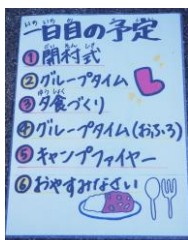 一日目の予定
①開村式
②グループタイム
③夕食づくり
④グループタイム(おふろ)
⑤キャンプファイヤー
⑥おやすみなさい